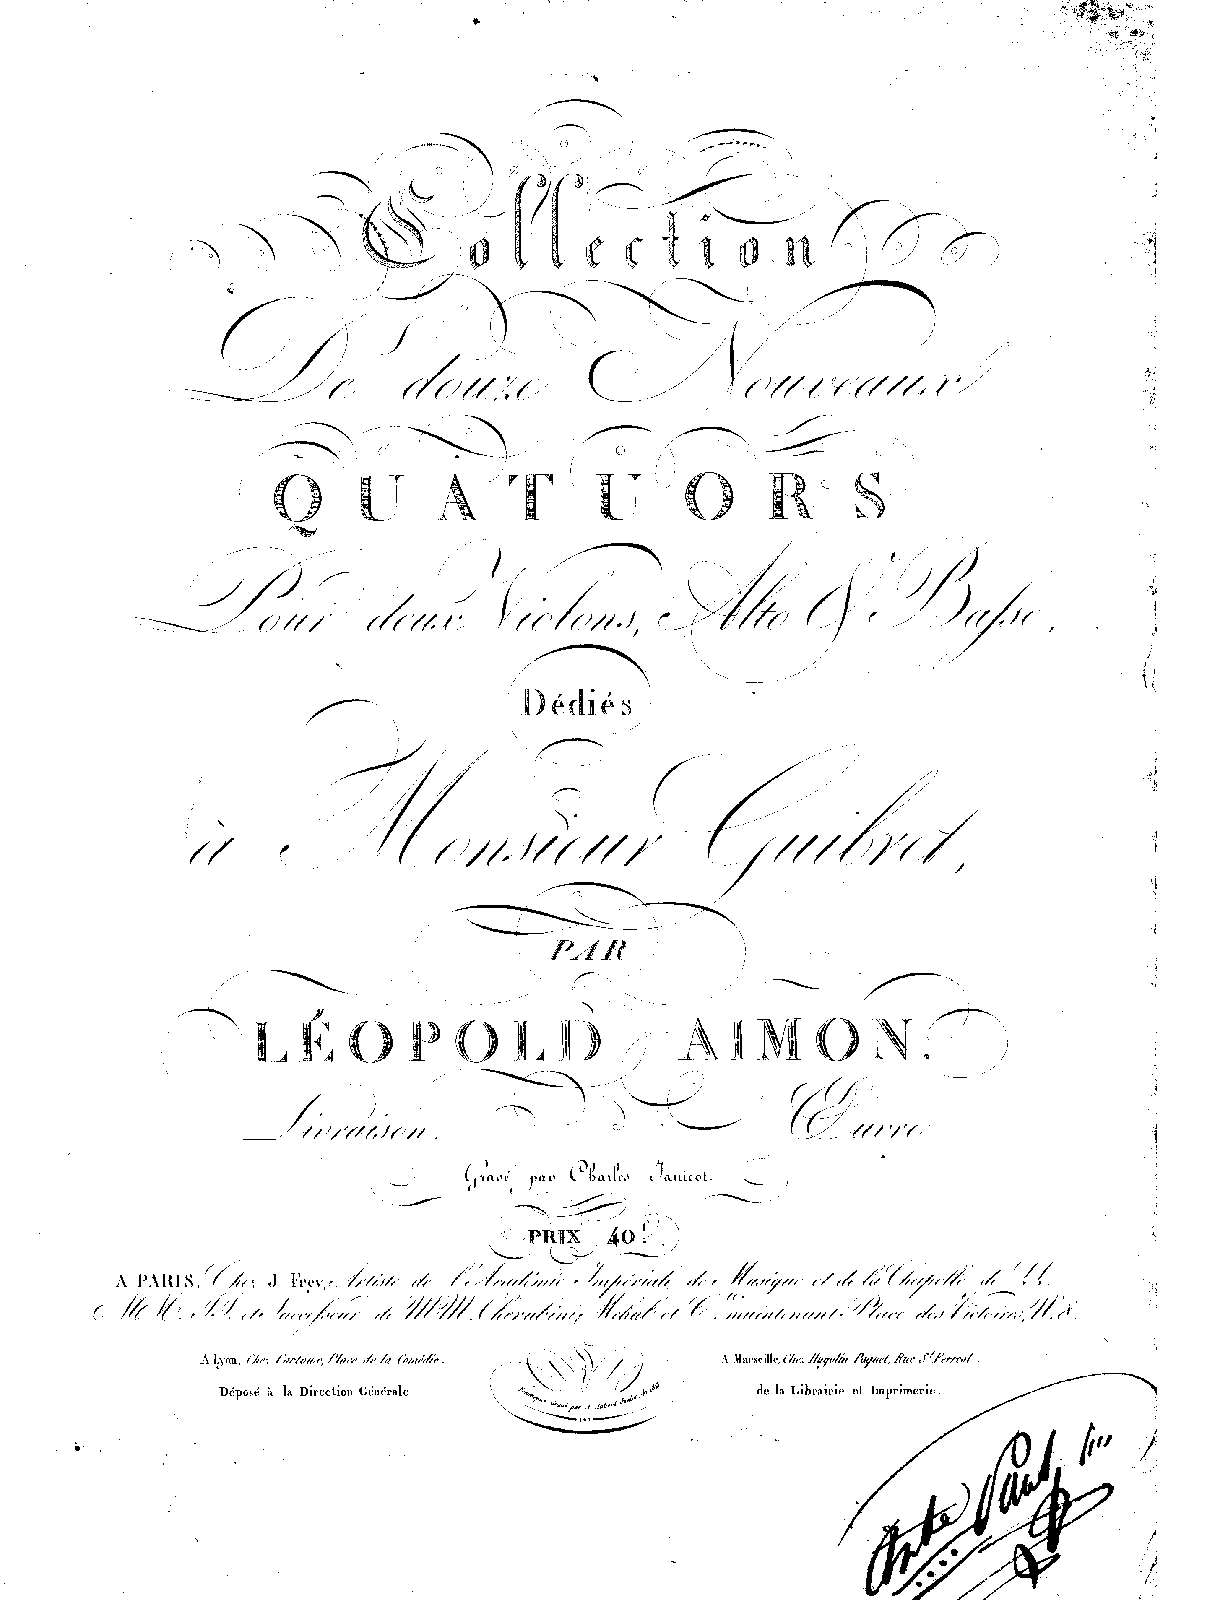 Collection
De douze Nouveaux
QUATUORS
Pour deux Violons, Alto & Basse.
Dédiés
à Monsieur Guibret,
PAR
LÉOPOLD AIMON.
Livraison. Œuvre
Gravé par Charles Janicot.
PRIX 40f.
A PARIS, Chez J. Frey, Artiste de l'Académie Impériale de Musique et de la Chapelle de LL.
MM. II. et Successeur de MM. Cherubini, Mehul et Cie. maintenant Place des Victoires, N. 8.
A Lyon, Chez Cartoux, Place de la Comédie. A Marseille, Chez Hugolin Paquet, Rue St. Ferreol.
Déposé à la Direction Générale de la Librairie et Imprimerie.